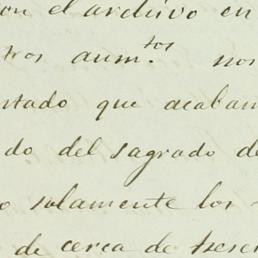 on el archivo en
tros aum.tos nos
ntado que acabam
do del sagrado de
o solamente los
de cerca de